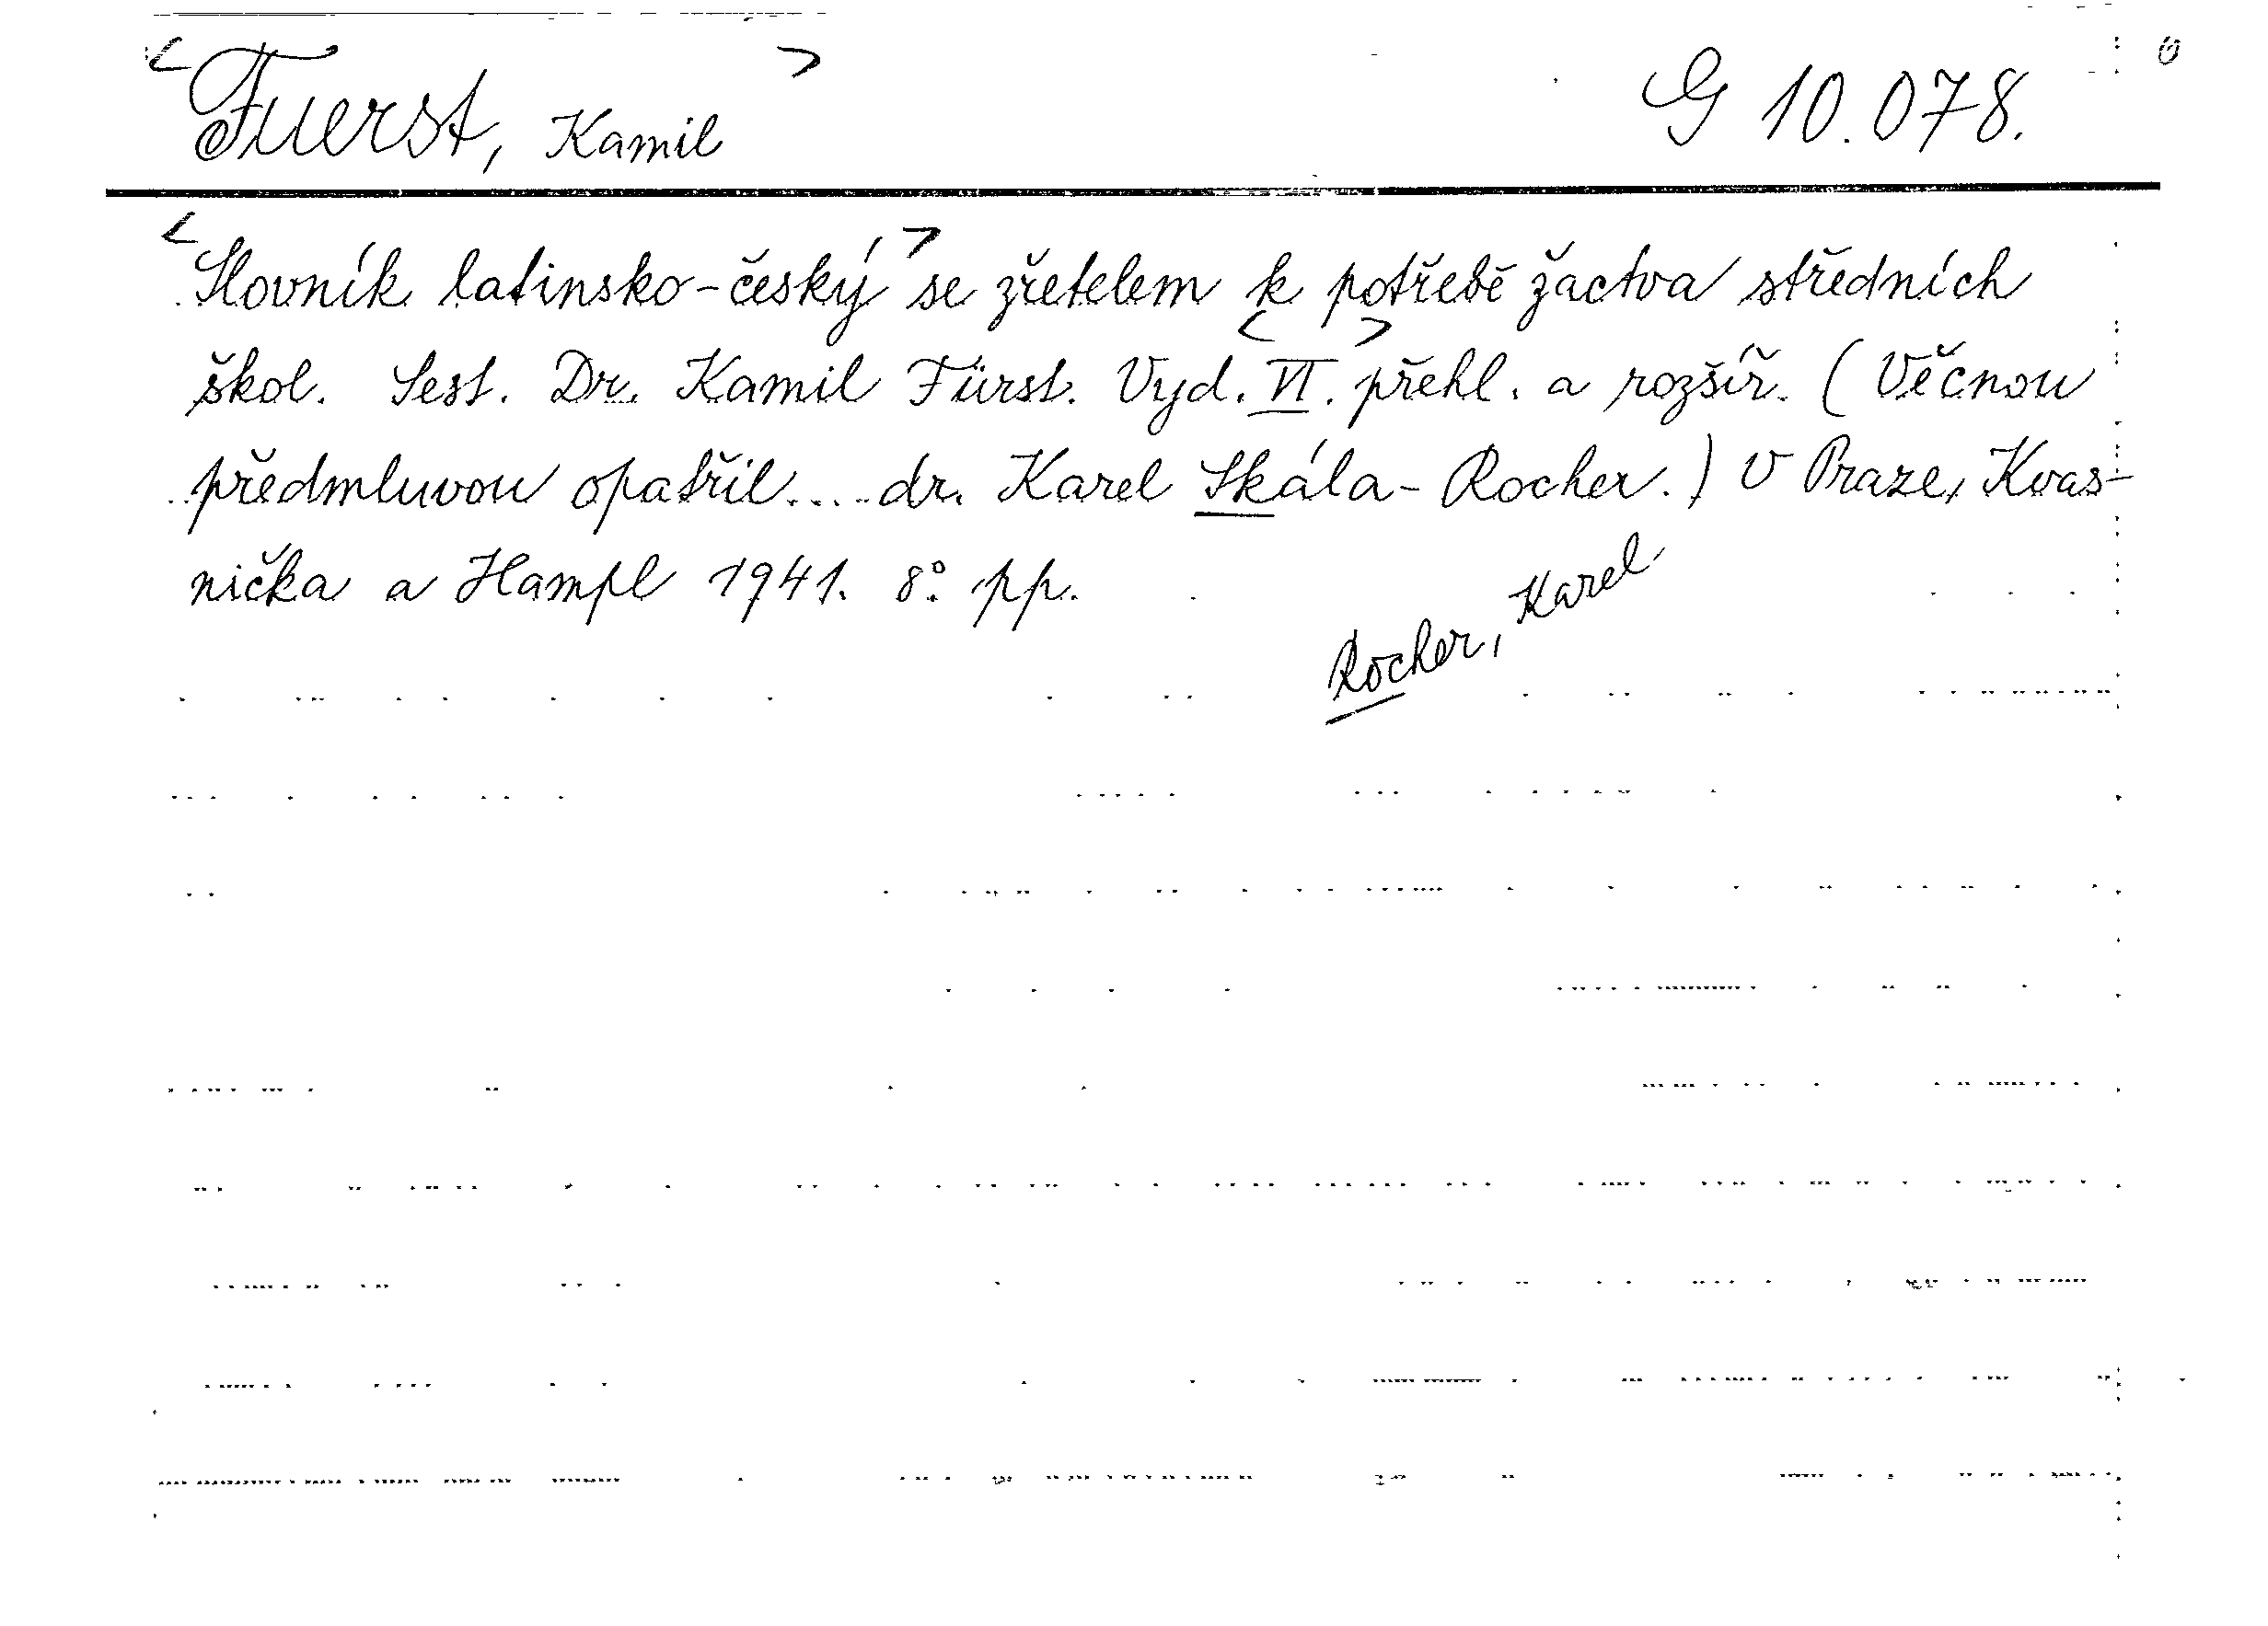 <Fuerst, Kamil> G 10.078.
<Slovník latinsko-český> se zřetelem k potřebě žactva středních
škol. Sest. Dr. Kamil Fürst. Vyd. <VI.> přehl. a rozšíř. (Věčnou
předmluvou opatřil.... dr. Karel Skála-Rocher.) V Praze, Kvas-
nička a Hampl 1941. 8° pp.
Rocher, Karel